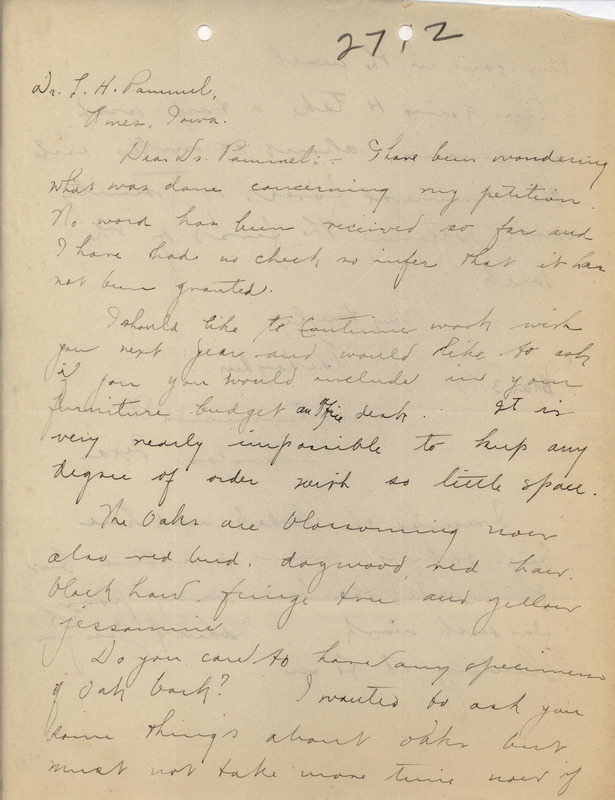 27 12
Dr. L. H. Pammel,
Ames, Iowa.
Dear Dr. Pammel:- I have been wondering
what was done concerning my petition.
No word has been received so far and
I have had no check, so infer that it has
not been granted.
I should like to continue work with
you next year and would like to ask
if you you would include in your
furniture budget an office desk. It is
very nearly impossible to keep any
degree of order with so little space.
The oaks are blossoming now
also red bud, dogwood, red haw,
black haw, fringe tree and yellow
jessamine.
Do you care to have any specimens
of oak bark? I wanted to ask you
some things about oaks but
must not take more time now if